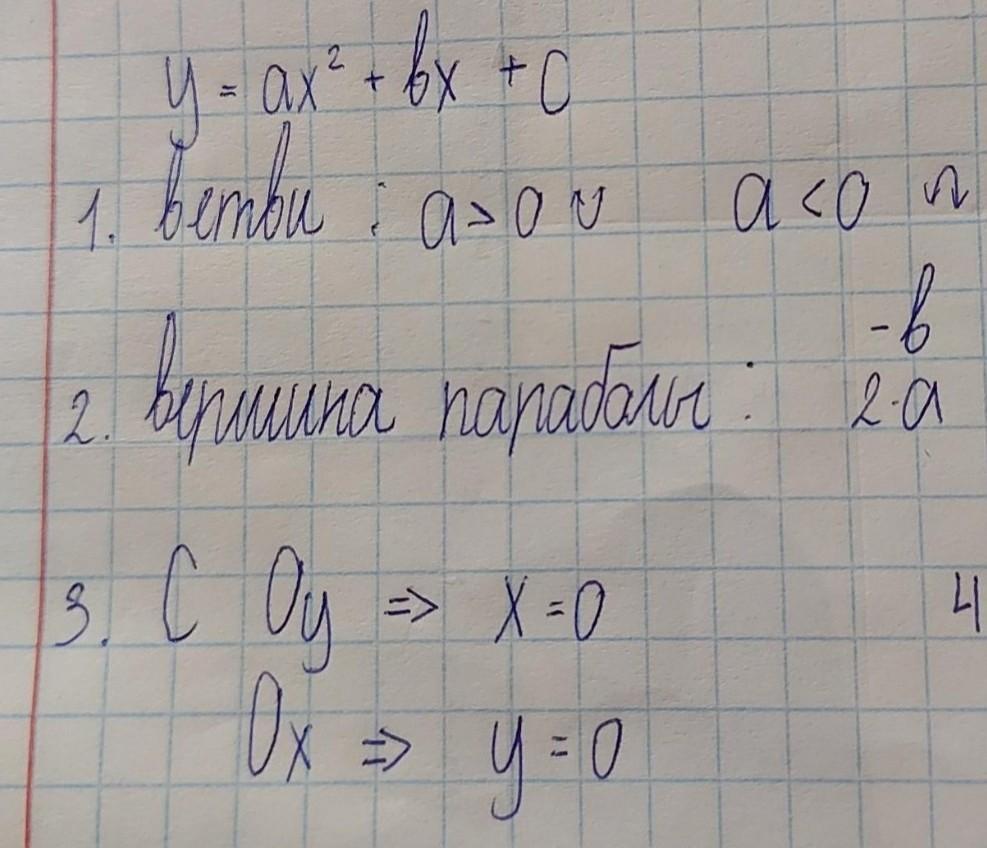 y = ax² + bx + c
1. ветви : a > 0 ∪ a < 0 ∩
2. вершина параболы : -b
2·a
3. С Oy => x = 0 4
Ox => y = 0